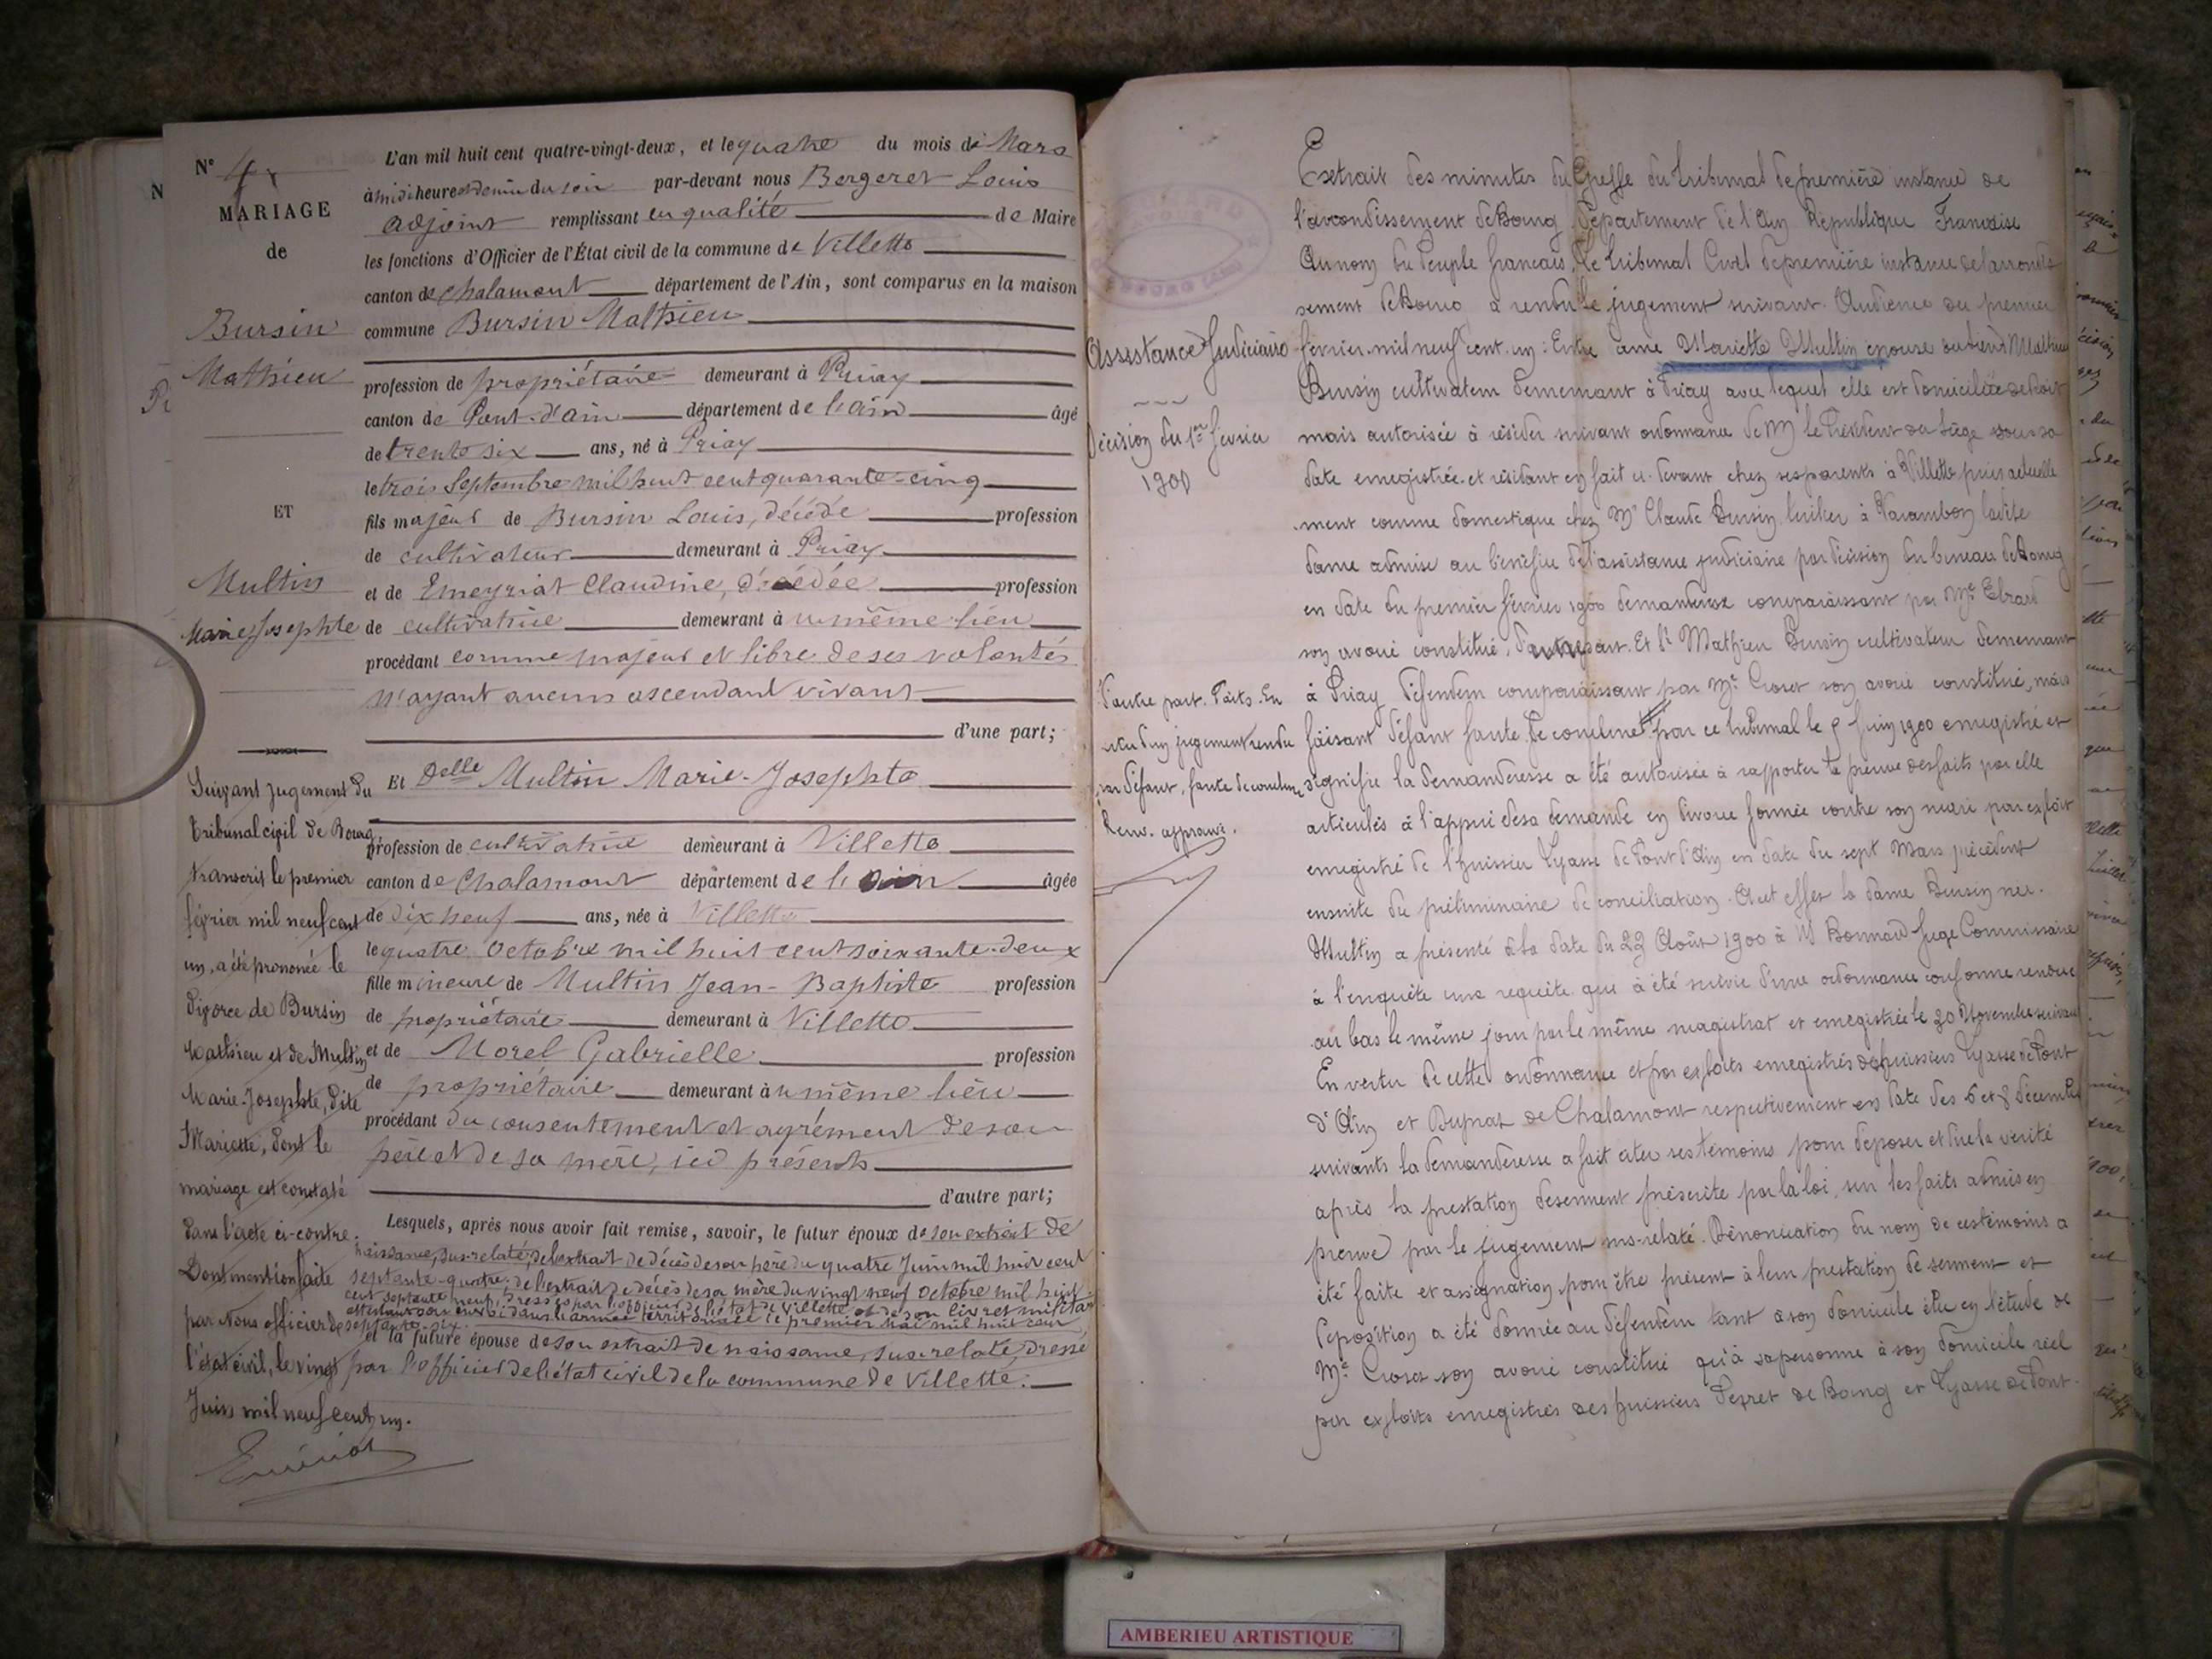 N° 4
MARIAGE
de
Bursin
Mathieu
ET
Multin
Marie Josephte
L'an mil huit cent quatre-vingt-deux, et le quatre du mois de Mars
à midi heure et demie du soir par-devant nous Bergeret Louis
adjoint remplissant en qualité de Maire
les fonctions d'Officier de l'État civil de la commune de Villette
canton de Chalamont département de l'Ain, sont comparus en la maison
commune Bursin Mathieu
profession de propriétaire demeurant à Priay
canton de Pont-d'ain département de l'ain âgé
de trente six ans, né à Priay
le trois Septembre mil huit cent quarante-cinq
fils majeur de Bursin Louis, décédé profession
de cultivateur demeurant à Priay
et de Emeyriat Claudine, décédée profession
de cultivatrice demeurant à u même lieu
procédant comme majeur et libre de ses volontés
n'ayant aucuns ascendant vivant
d'une part;
Et Delle Multin Marie-Josephte
profession de cultivatrice demeurant à Villette
canton de Chalamont département de l'Ain âgée
de dix neuf ans, née à Villette
le quatre Octobre mil huit cent soixante-deux
fille mineure de Multin Jean-Baptiste profession
de propriétaire demeurant à Villette
et de Morel Gabrielle profession
de propriétaire demeurant à u même lieu
procédant du consentement et agrément de son
père et de sa mère, ici présents
d'autre part;
Lesquels, après nous avoir fait remise, savoir, le futur époux de son extrait de
naissance, sus-relaté, de l'extrait de décès de son père du quatre Juin mil huit cent
septante-quatre, de l'extrait de décès de sa mère du vingt neuf octobre mil huit
cent septante neuf, dressés par l'officier de l'état de Villette et de son livret militaire
attestant son envoi dans l'armée territoriale le premier mai mil huit cent
septante-six.
et la future épouse de son extrait de naissance, sus-relaté, dressé
par l'officier de l'état civil de la commune de Villette.
Suivant jugement du
tribunal civil de Bourg,
transcrit le premier
février mil neuf cent
un, a été prononcé le
divorce de Bursin
Mathieu et de Multin
Marie-Josephte, dite
Mariette, dont le
mariage est constaté
dans l'acte ci-contre.
Dont mention faite
par Nous officier de
l'état civil, le vingt
Juin mil neuf cent un.
Assistance Judiciaire
Décision du 1er février
1900
Extrait des minutes du Greffe du tribunal de première instance de
l'arrondissement de Bourg département de l'Ain République Française
Au nom du Peuple français, Le tribunal Civil de première instance de l'arrondis
sement de Bourg a rendu le jugement suivant. Audience du premier
février mil neuf cent un : Entre dame Mariette Multin épouse du sieur Mathieu
Bursin cultivateur demeurant à Priay avec lequel elle est domiciliée de droit
mais autorisée à résider suivant ordonnance de M le Président du Siège sous sa
date enregistrée et résidant en fait ci-devant chez ses parents à Villette puis actuelle
ment comme domestique chez Mr Claude Bursin tuilier à Varambon ladite
dame admise au bénéfice de l'assistance judiciaire par décision du bureau de Bourg
en date du premier février 1900 demanderesse comparaissant par Me Ebrard
son avoué constitué, d'une part. Et Sr Mathieu Bursin cultivateur demeurant
à Priay défendeur comparaissant par Me Croset son avoué constitué, mais
faisant défaut faute de conclure par ce tribunal le 8 Juin 1900 enregistré et
signifié la demanderesse a été autorisée à rapporter la preuve des faits par elle
articulés à l'appui de sa demande en divorce formée contre son mari par exploit
enregistré de l'huissier Lyasse de Pont d'Ain en date du sept Mars précédent
ensuite du préliminaire de conciliation. A cet effet la dame Bursin née
Multin a présenté à la date du 29 Août 1900 à M Bonnard Juge Commissaire
à l'enquête une requête qui a été suivie d'une ordonnance conforme rendue
au bas le même jour par le même magistrat et enregistrée le 30 Novembre suivant
En vertu de cette ordonnance et par exploits enregistrés des huissiers Lyasse de Pont
d'Ain et Duprat de Chalamont respectivement en date des 6 et 8 décembre
suivants la demanderesse a fait citer ses témoins pour déposer et dire la vérité
après la prestation de serment préscrite par la loi, sur les faits admis en
preuve par le jugement sus-relaté. Dénonciation du nom de ces témoins a
été faite et assignation pour être présent à leur prestation de serment et
déposition a été donnée au défendeur tant à son domicile élu en l'étude de
Me Croset son avoué constitué qu'à sa personne à son domicile réel
par exploits enregistrés des huissiers Perret de Bourg et Lyasse de Pont-
d'autre part. Faits. En
vertu d'un jugement rendu
par défaut, faute de conclure
Renv. approuvé.
AMBERIEU ARTISTIQUE